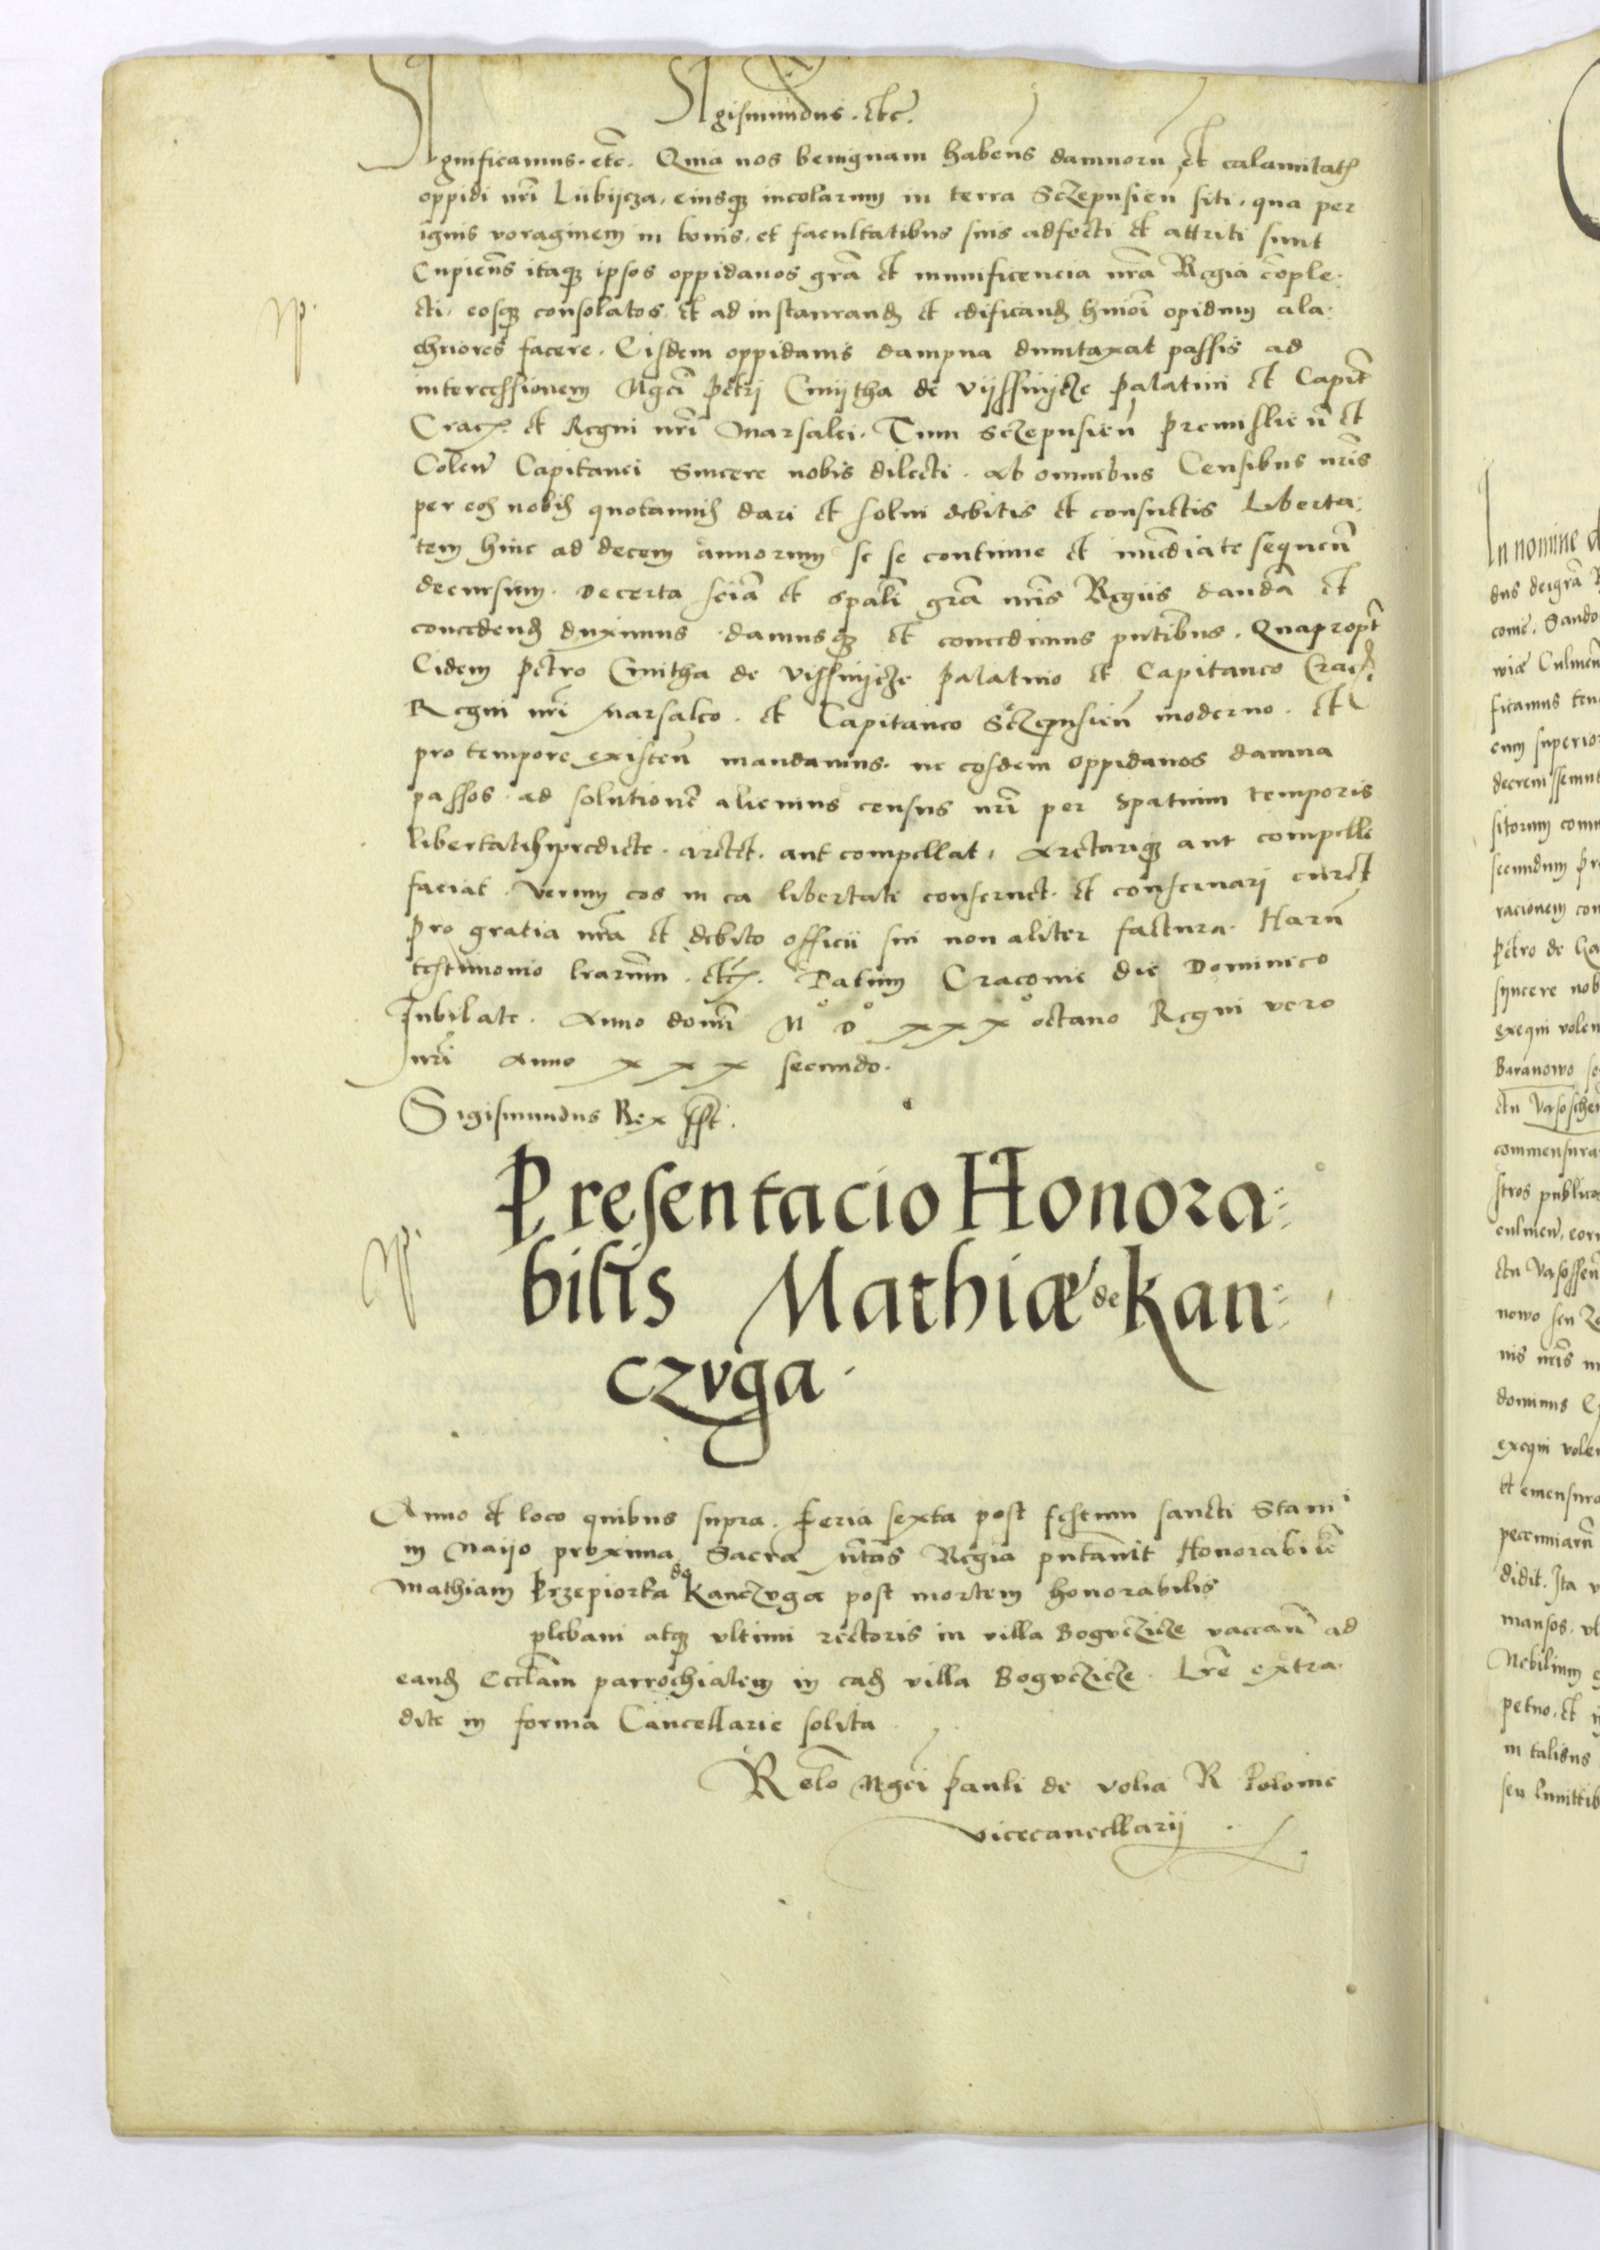 Sigismundus . etc.
Significamus . etc. Quia nos benignam habens damnorū et calamitatū
oppidi nrī Lubijcza, eiusqz incolarum in terra Sczepusien̄ siti, qua per
ignis voraginem in bonis, et facultatibus suis adfecti et attriti sunt
Cupien̄s itaqz ipsos oppidanos grā et munificencia nrā Regia cōple:
cti, eosqz consolatos et ad instaurand et edificand hmōi opidum ala:
chriores facere. Eisdem oppidanis dampna dumtaxat passis ad
intercessionem Mgcī Petrj Cmijtha de Vijssnijcze Palatini et Capit̄
Crac. et Regni nrī Marsalci. Tum Sczepusien̄ Premislien̄ et
Colen̄ Capitanei Sincere nobis dilecti. Ab omnibus Censibus nrīs
per eos nobis quotannis dari et solui debitis et consuetis Liberta:
tem hinc ad decem annorum se se continue et īmediate sequen̄
decursum. De certa sciā et spāli grā nrīs Regiis dandā et
concedend duximus . damusqz et concedimus pntibus. Quapropt̄
Eidem Petro Cmitha de Vissnijcze Palatino et Capitaneo Crac.
Regni nrī Marsalco. et Capitaneo Sczepusien̄ moderno. et
pro tempore existen̄ mandamus. ne eosdem oppidanos damna
passos. ad solutionē alicuius census nrī per spatium temporis
libertatis predicte. artet. aut compellat, Arctariqz aut compelli
faciat. Verum eos in ea libertate conseruet. et conseruari curet
Pro gratia nrā et debito officii sui non aliter factura. Harū
testimonio lrarum . etc. Datum Cracovie die Dominico
Iubilate. Anno domī Mo Do xxxo octauo Regni vero
nrī Anno xxx secundo.
Sigismundus Rex sst.
Presentacio Honora:
bilis Mathiæ de Kan:
czvga.
Anno et loco quibus supra. Feria sexta post festum sancti Stanī
in Maijo proxima Sacra Mtas Regia pntauit Honorabilē
Mathiam Przepiorka de Kanczvga post mortem honorabilis
plebani atqz vltimi rectoris in villa Bogvczicze vaccan̄ ad
eand Ecclām parrochialem in ead villa Bogvczicze. Lrē extra
dite in forma Cancellarie solita
Relo Mgcī Pauli de Volia R Polonie
vicecancellarij
In nomine
dus dei grā
come. Sando
wiæ Culmen̄
ficamus
eum superior
decreuissemus
sitorum
secundum
racionem
Petro de
sijncere nob
exequi volen
Baranowo
ctu Vasoschen
commensura
stros publica
culmen̄.
ctu Vasossen̄
nowo seu
nis nrīs
dominus
exequi volen
et emensura
pecuniarū
didit. Ita
mansos.
Nobilium
petuo. et
in talibus
seu limitib